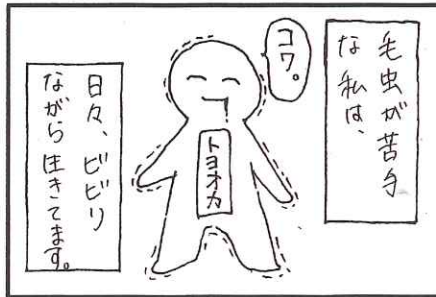 毛虫が苦手
な私は、
コワ。
トヨオカ
日々、ビビリ
ながら生きてます。